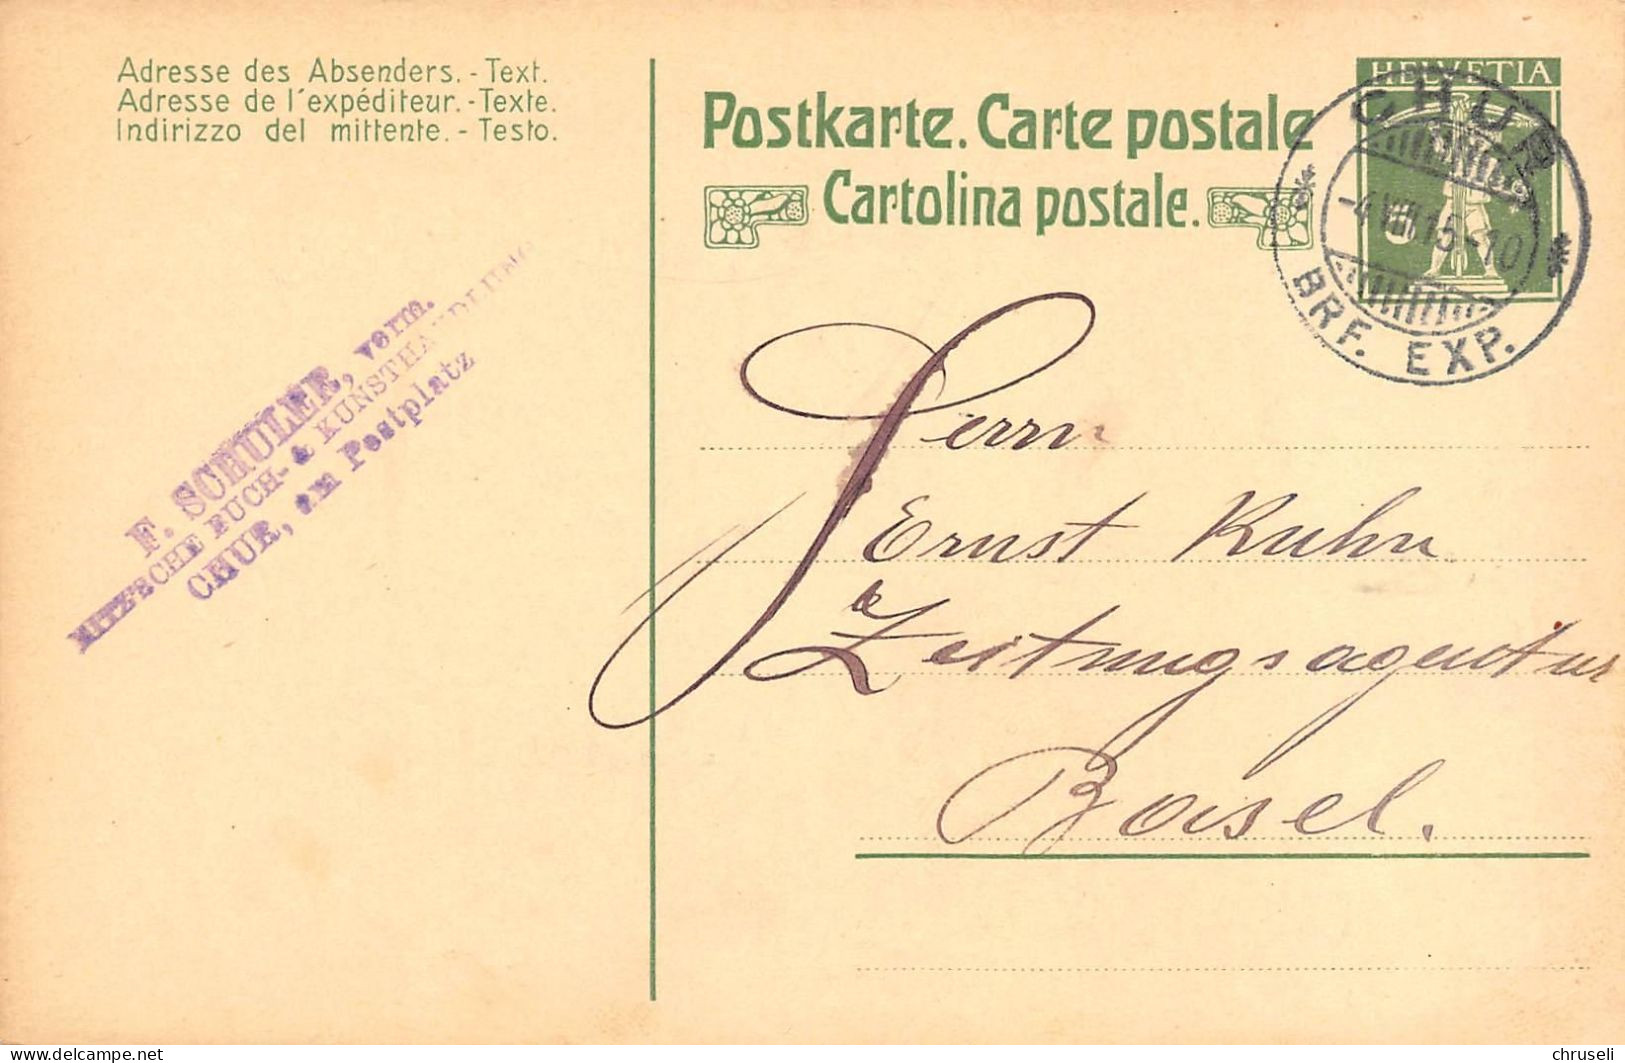 Adresse des Absenders. - Text.
Adresse de l'expéditeur. - Texte.
Indirizzo del mittente. - Testo.
Postkarte. Carte postale
Cartolina postale.
HELVETIA
5
CHUR
-4.VIII.15.-10
BRF. EXP.
F. SCHULER, vorm.
HITZ'SCHE BUCH- & KUNSTHANDLUNG
CHUR, am Postplatz
Herrn
Ernst Kuhn
Zeitungsagentur
Basel.
delcampe.net
chruseli